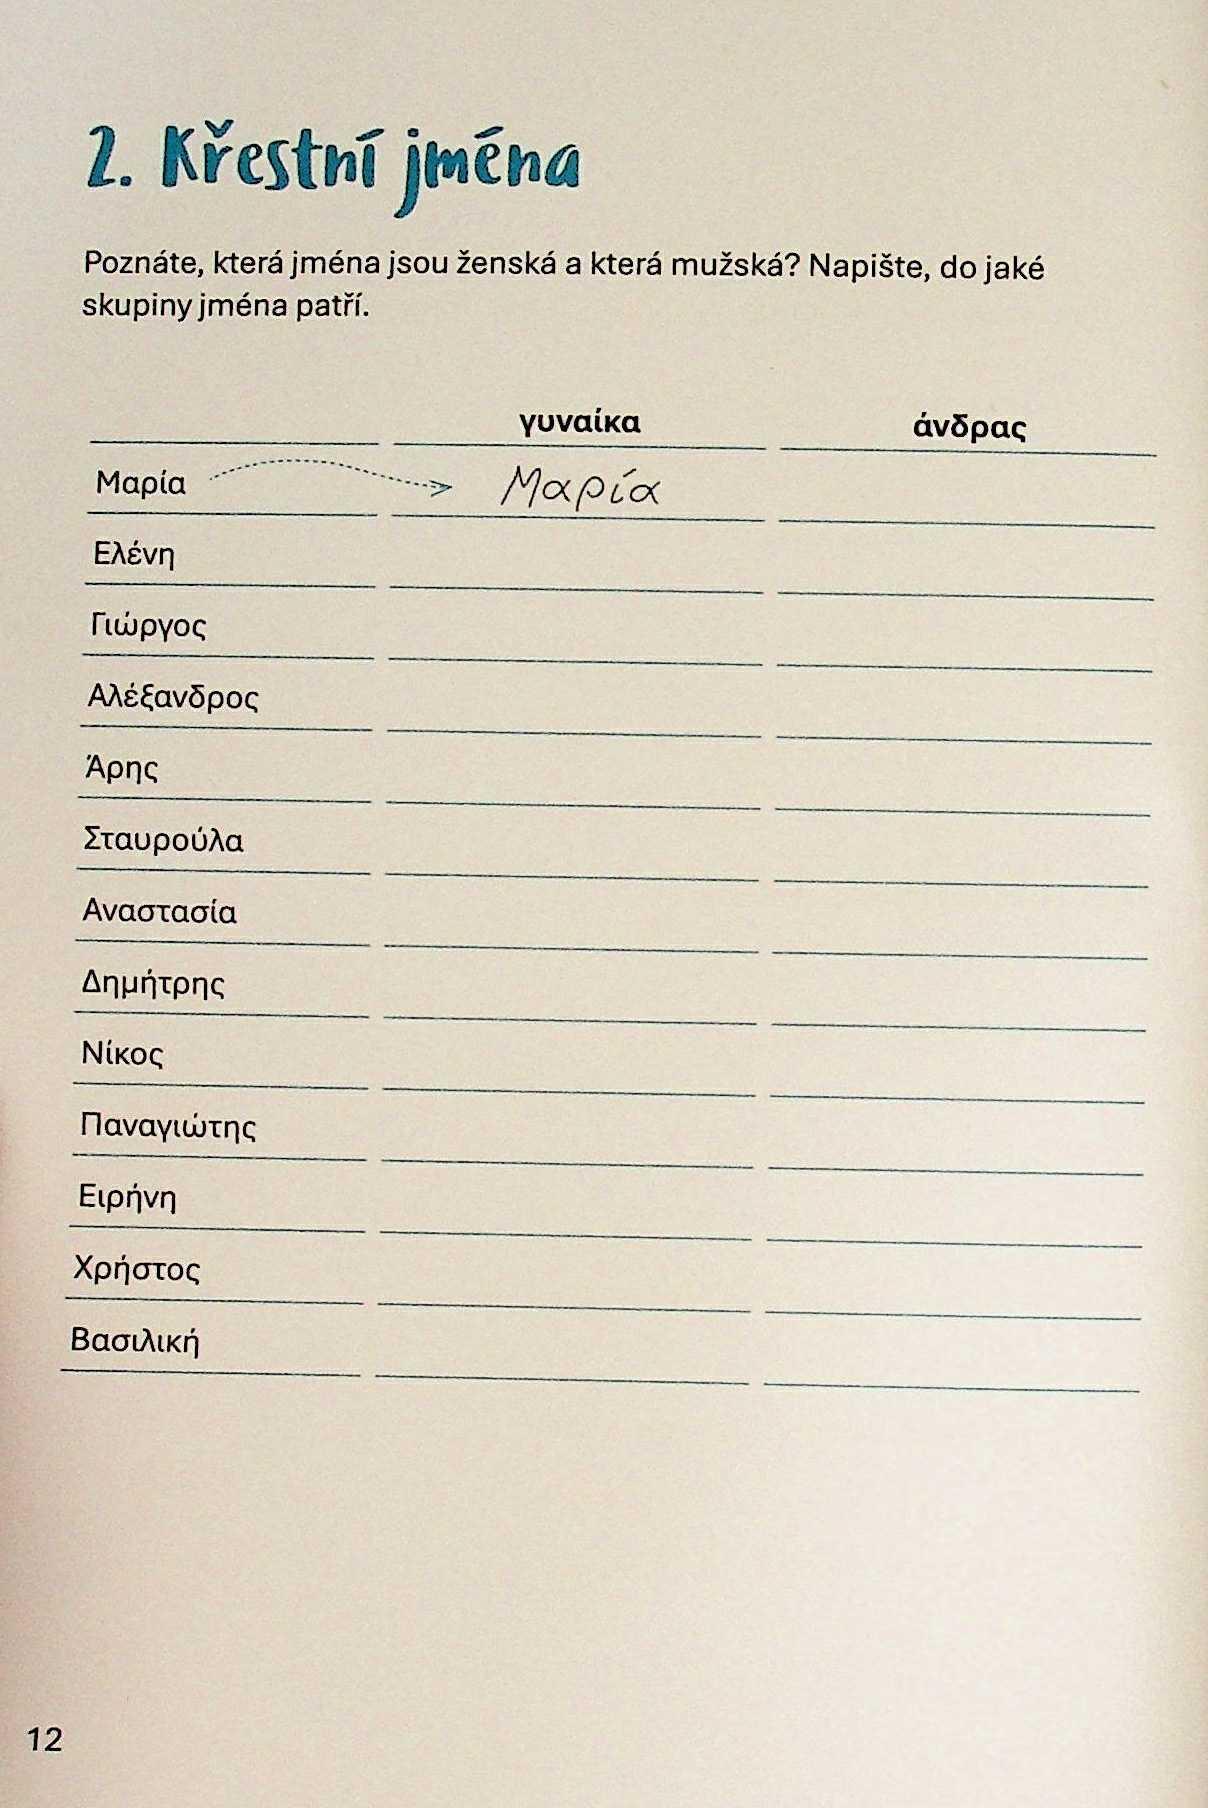 2. Křestní jména
Poznáte, která jména jsou ženská a která mužská? Napište, do jaké
skupiny jména patří.
γυναίκα άνδρας
Μαρία Μαρία
Ελένη
Γιώργος
Αλέξανδρος
Άρης
Σταυρούλα
Αναστασία
Δημήτρης
Νίκος
Παναγιώτης
Ειρήνη
Χρήστος
Βασιλική
12